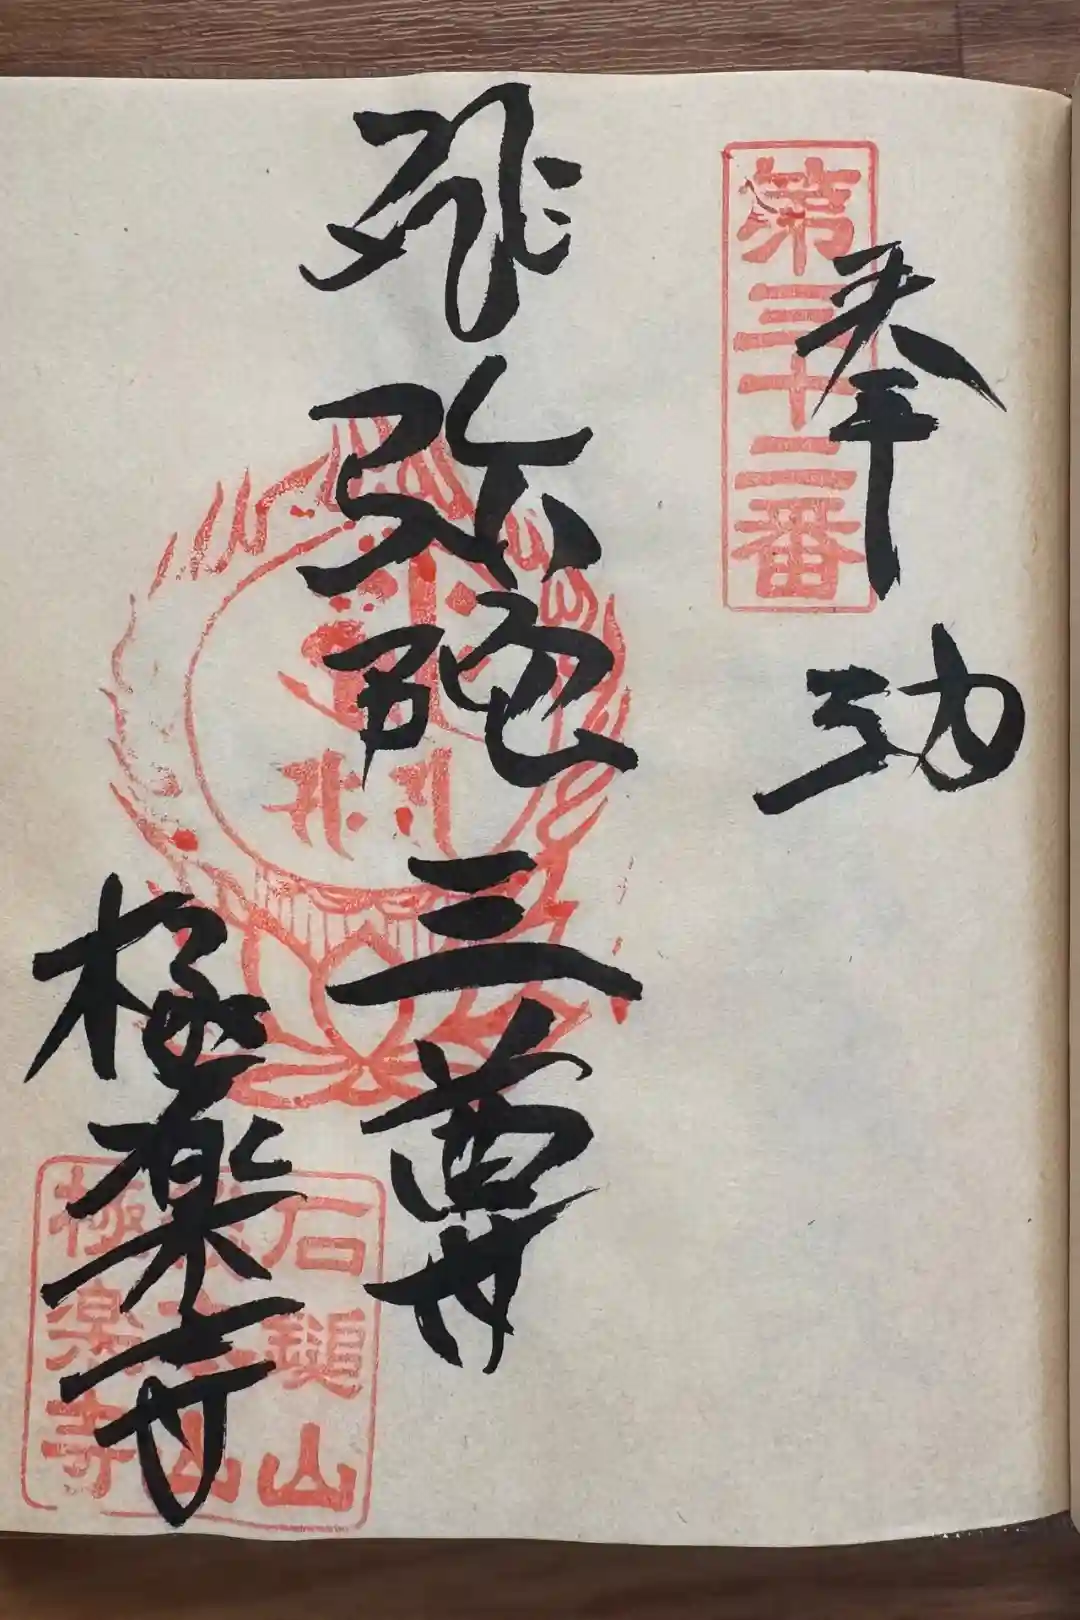 第三十二番
奉功
弥陀三尊
極楽寺
石鎚山
極楽寺